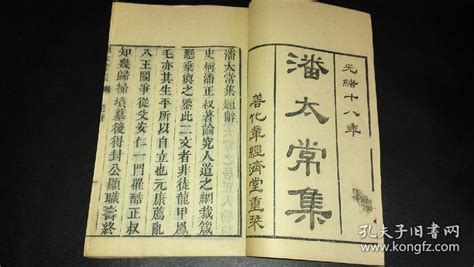 光緒十八年
潘太常集
善化章經濟堂重栞
潘太常集題辭
史稱潘正叔著論究人道之綱裁箴
懸乘輿之鑒此二文者非徒龍甲鳳
毛亦其生平自立也元康亂
八王爭從父安仁一門罹酷正叔
知幾歸掃墳墓後得封公顯職壽終
孔夫子旧书网
www.kongfz.com